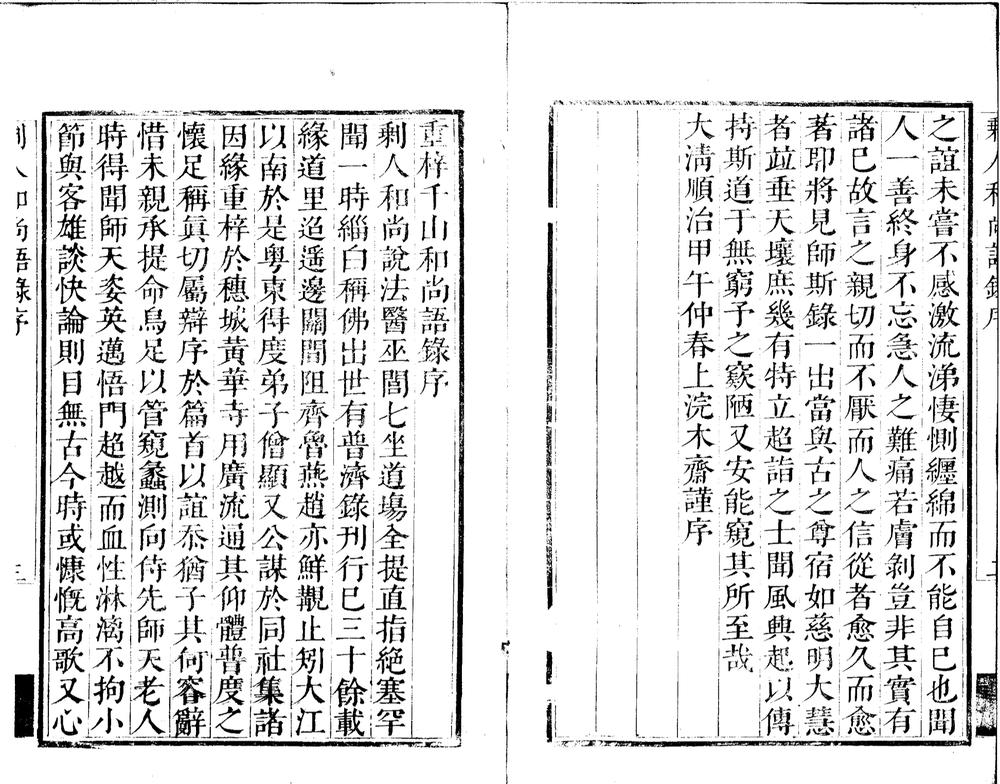 剩人和尚語錄序
二
之誼未嘗不感激流涕悽惻纏綿而不能自已也聞
人一善終身不忘急人之難痛若膚剝豈非其實有
諸已故言之親切而不厭而人之信從者愈久而愈
著耶將見師斯錄一出當與古之尊宿如慈明大慧
者竝垂天壤庶幾有特立超詣之士聞風興起以傳
持斯道于無窮予之窾陋又安能窺其所至哉
大清順治甲午仲春上浣木齋謹序
重梓千山和尚語錄序
剩人和尚說法醫巫閭七坐道場全提直指絕塞罕
聞一時緇白稱佛出世有普濟錄刊行已三十餘載
緣道里迢遥邊關間阻齊魯燕趙亦鮮覯止矧大江
以南於是粵東得度弟子僧顯又公謀於同社集諸
因緣重梓於穗城黃華寺用廣流通其仰體普度之
懷足稱眞切屬辯序於篇首以誼忝猶子其何容辭
惜未親承提命烏足以管窺蠡測向侍先師天老人
時得聞師天姿英邁悟門超越而血性淋漓不拘小
節與客雄談快論則目無古今時或慷慨高歌又心
剩人和尚語錄序
三